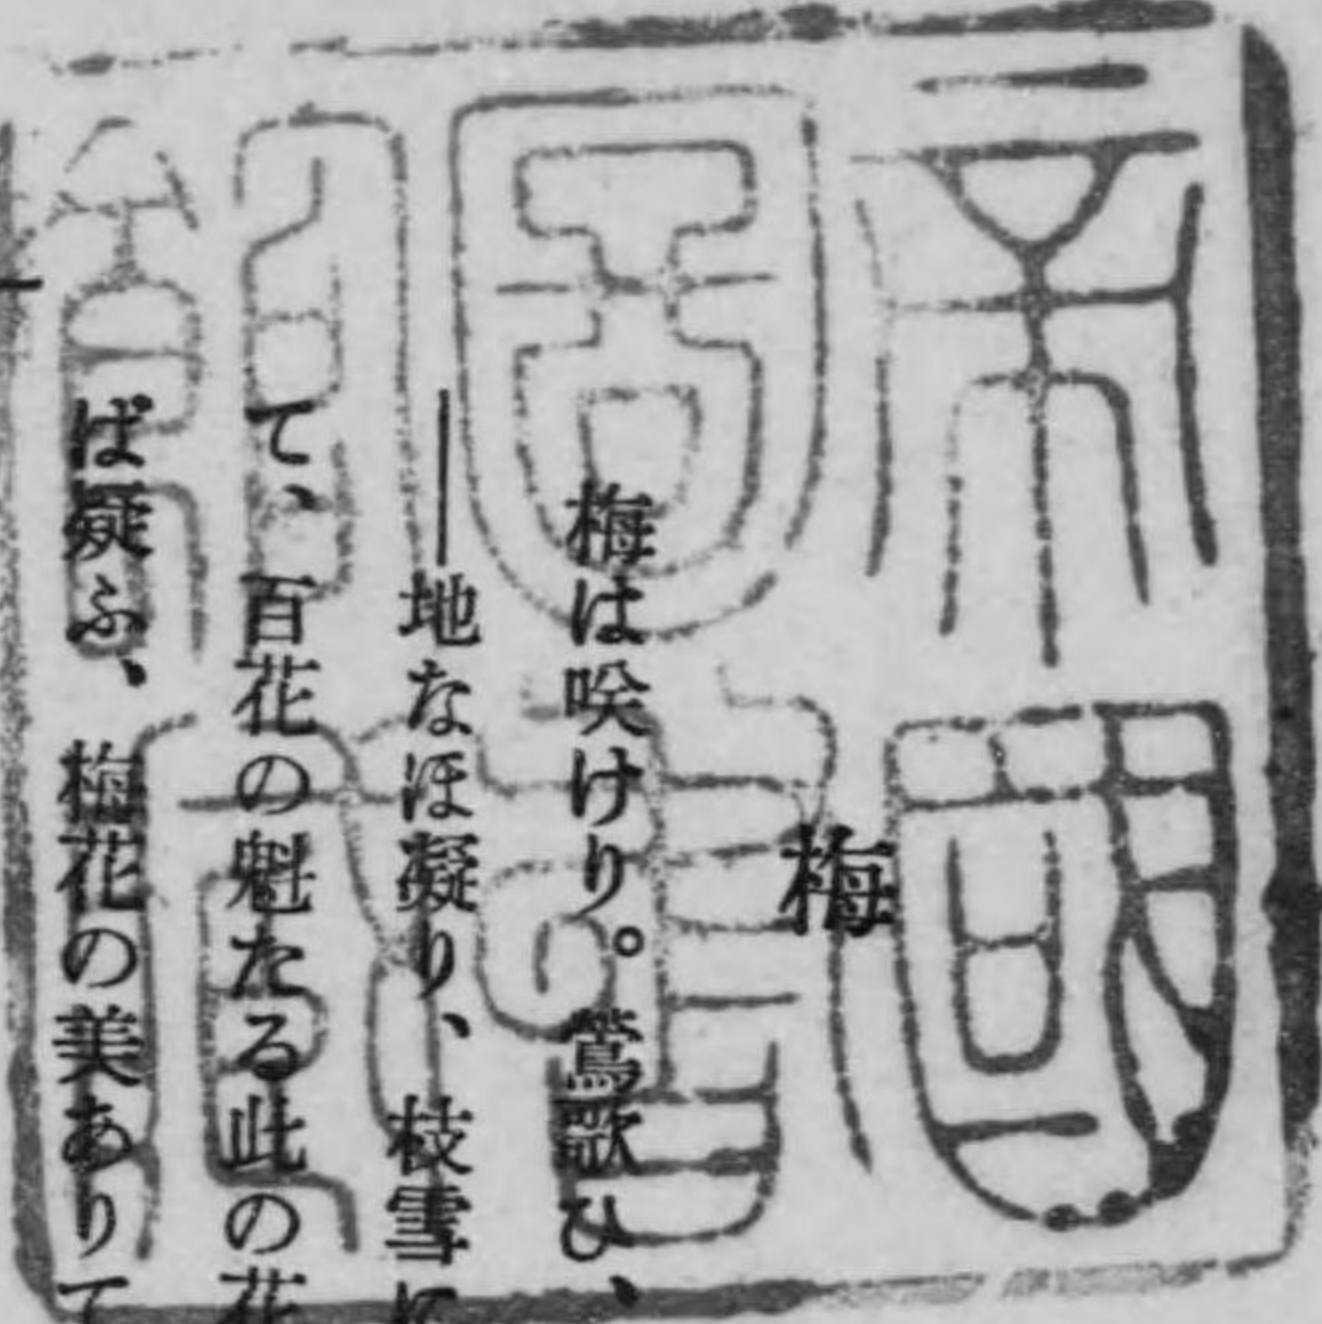 帝國
圖書
館藏
梅
梅は咲けり。鶯歌ひ、
――地なほ凝り、枝雪に
て、百花の魁たる此の花
ば疑ふ、梅花の美ありて